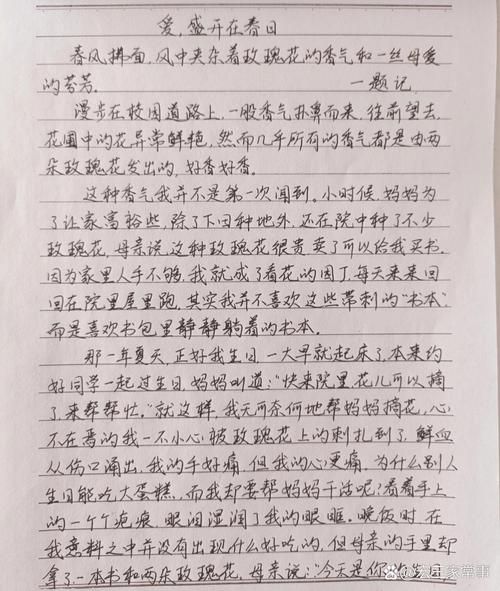 爱,盛开在春日
春风拂面,风中夹杂着玫瑰花的香气和一丝母爱
的芬芳.
—题记.
漫步在校园道路上,一股香气扑鼻而来,往前望去,
花圃中的花异常鲜艳,然而几乎所有的香气都是由两
朵玫瑰花发出的,好香好香。
这种香气我并不是第一次闻到。小时候,妈妈为
了让家富裕些,除了下田种地外,还在院中种了不少
玫瑰花,母亲说这种玫瑰花很贵卖了可以给我买书.
因为家里人手不够,我就成了看花的园丁,每天来来回
回在院里屋里跑,其实我并不喜欢这些带刺的“书本”
而是喜欢书包里静静躺着的书本.
那一年夏天,正好我生日一大早就起床了,本来约
好同学一起过生日,妈妈叫道:“快来院里花儿可以摘
了,来帮帮忙,”就这样,我无可奈何地帮妈妈摘花,心
不在焉的我一不小心被玫瑰花上的刺扎到了,鲜血
从伤口涌出,我的手好痛,但我的心更痛,为什么别人
生日能吃大蛋糕,而我却要帮妈妈干活呢?看着手上
的一个个疤痕,眼泪湿润了我的眼眶.晚饭时,在
我意料之中并没有出现什么好吃的,但母亲的手里却
拿了一本书和两朵玫瑰花,母亲说:“今天是你的生日